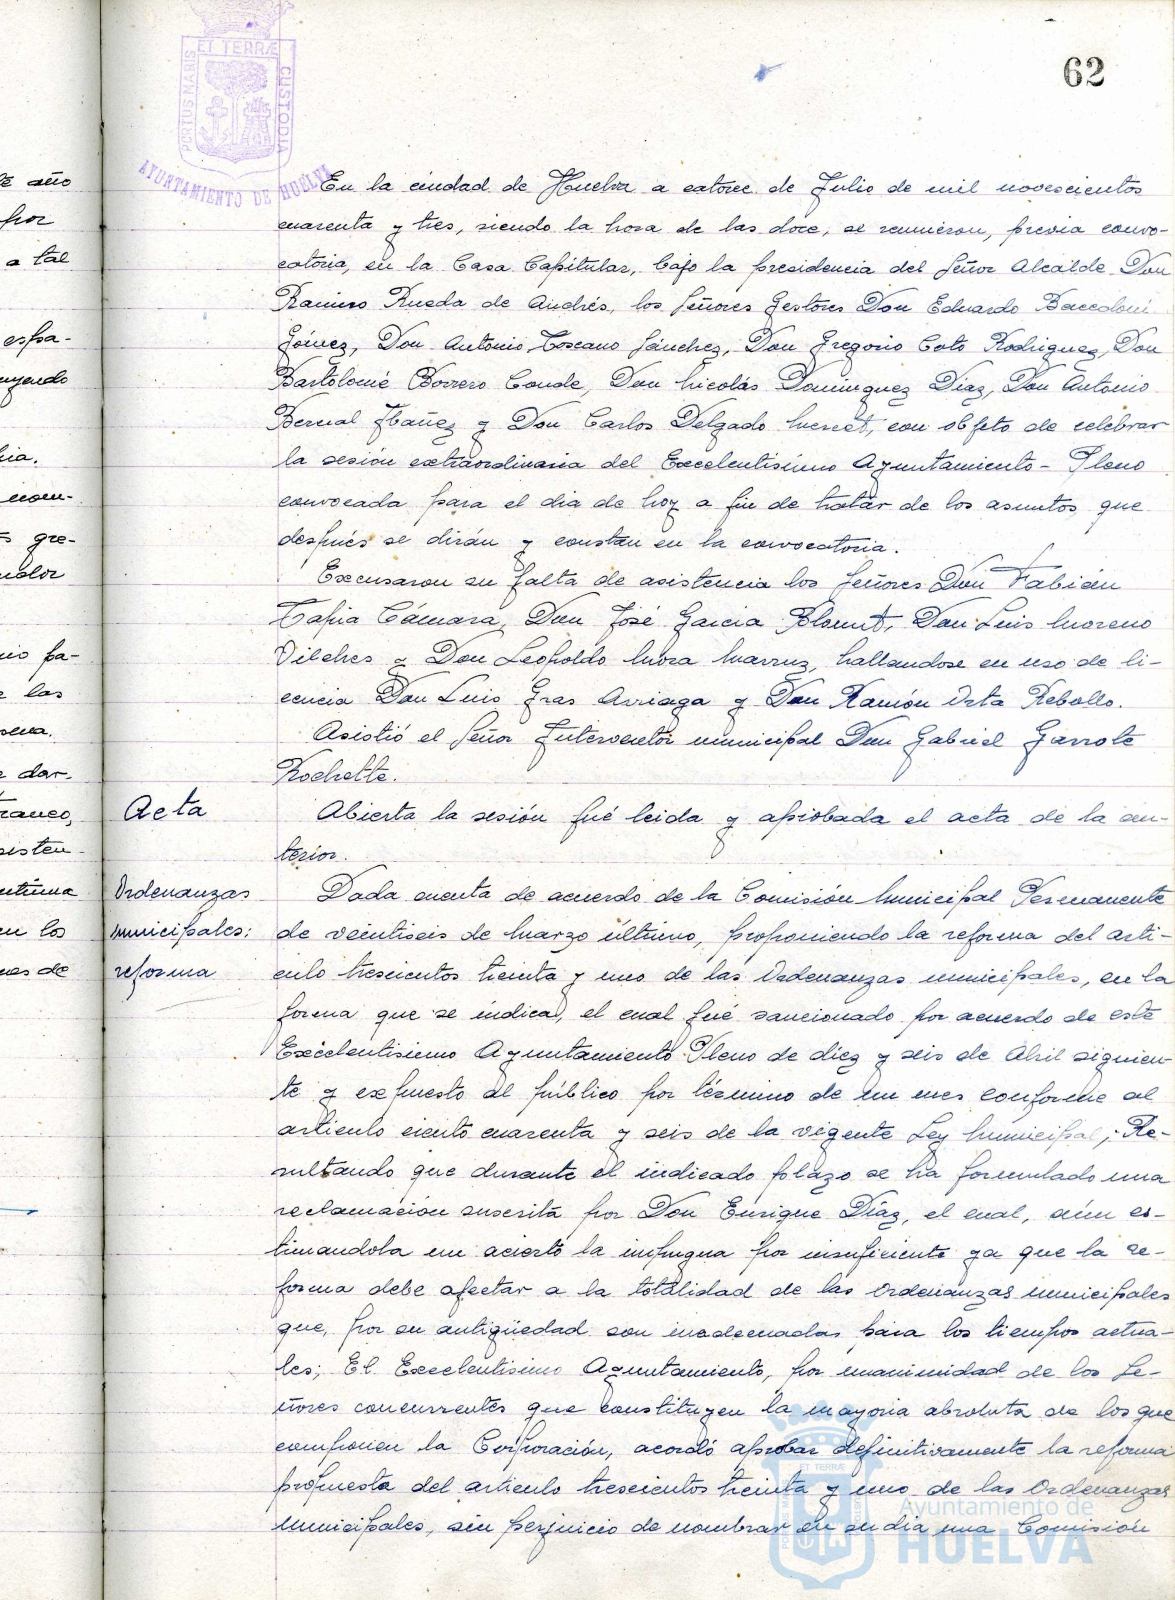 62
PORTUS MARIS ET TERRÆ CUSTODIA
AYUNTAMIENTO DE HUELVA
En la ciudad de Huelva a catorce de Julio de mil novescientos
cuarenta y tres, siendo la hora de las doce, se reunieron, previa convo-
catoria, en la Casa Capitular, bajo la presidencia del Señor Alcalde Don
Ramiro Rueda de Andrés, los Señores Gestores Don Eduardo Baccoloni
Gómez, Don Antonio Toscano Sánchez, Don Gregorio Coto Rodriguez, Don
Bartolomé Borrero Conde, Don Nicolás Dominguez Diaz, Don Antonio
Bernal Ibañez y Don Carlos Delgado Mercet, con objeto de celebrar
la sesión extraordinaria del Excelentisimo Ayuntamiento-Pleno
convocada para el dia de hoy a fin de tratar de los asuntos que
después se dirán y constan en la convocatoria.
Excusaron su falta de asistencia los Señores Don Fabián
Tapia Cámara, Don José Garcia Blount, Don Luis Moreno
Vilches y Don Leopoldo Mora hallandose en uso de li-
cencia Don Luis Gras Arriaga y Don Ramón Orta Rebollo.
Asistió el Señor Interventor municipal Don Gabriel Garrote
Rochette.
Acta
Abierta la sesión fué leida y aprobada el acta de la an-
terior.
Ordenanzas
municipales:
reforma
Dada cuenta de acuerdo de la Comisión Municipal Permanente
de veintiseis de Marzo último, proponiendo la reforma del arti-
culo trescientos treinta y uno de las Ordenanzas municipales, en la
forma que se indica, el cual fué sancionado por acuerdo de este
Excelentisimo Ayuntamiento Pleno de diez y seis de Abril siguien-
te y expuesto al público por término de un mes conforme al
articulo ciento cuarenta y seis de la vigente Ley Municipal; Re-
sultando que durante el indicado plazo se ha formulado una
reclamación suscrita por Don Enrique Díaz, el cual, aún es-
timandola un acierto la impugna por insuficiente ya que la re-
forma debe afectar a la totalidad de las Ordenanzas municipales
que, por su antigüedad son inadecuadas para los tiempos actua-
les; El Excelentisimo Ayuntamiento, por unanimidad de los Se-
ñores concurrentes que constituyen la mayoria absoluta de los que
componen la Corporación, acordó aprobar definitivamente la reforma
propuesta del articulo trescientos treinta y uno de las Ordenanzas
Municipales, sin perjuicio de nombrar en su dia una Comisión
año
por
a tal
espa-
uyendo
nom-
gre-
pa-
las
dar-
franco,
sisten-
en los
de
Ayuntamiento de
HUELVA